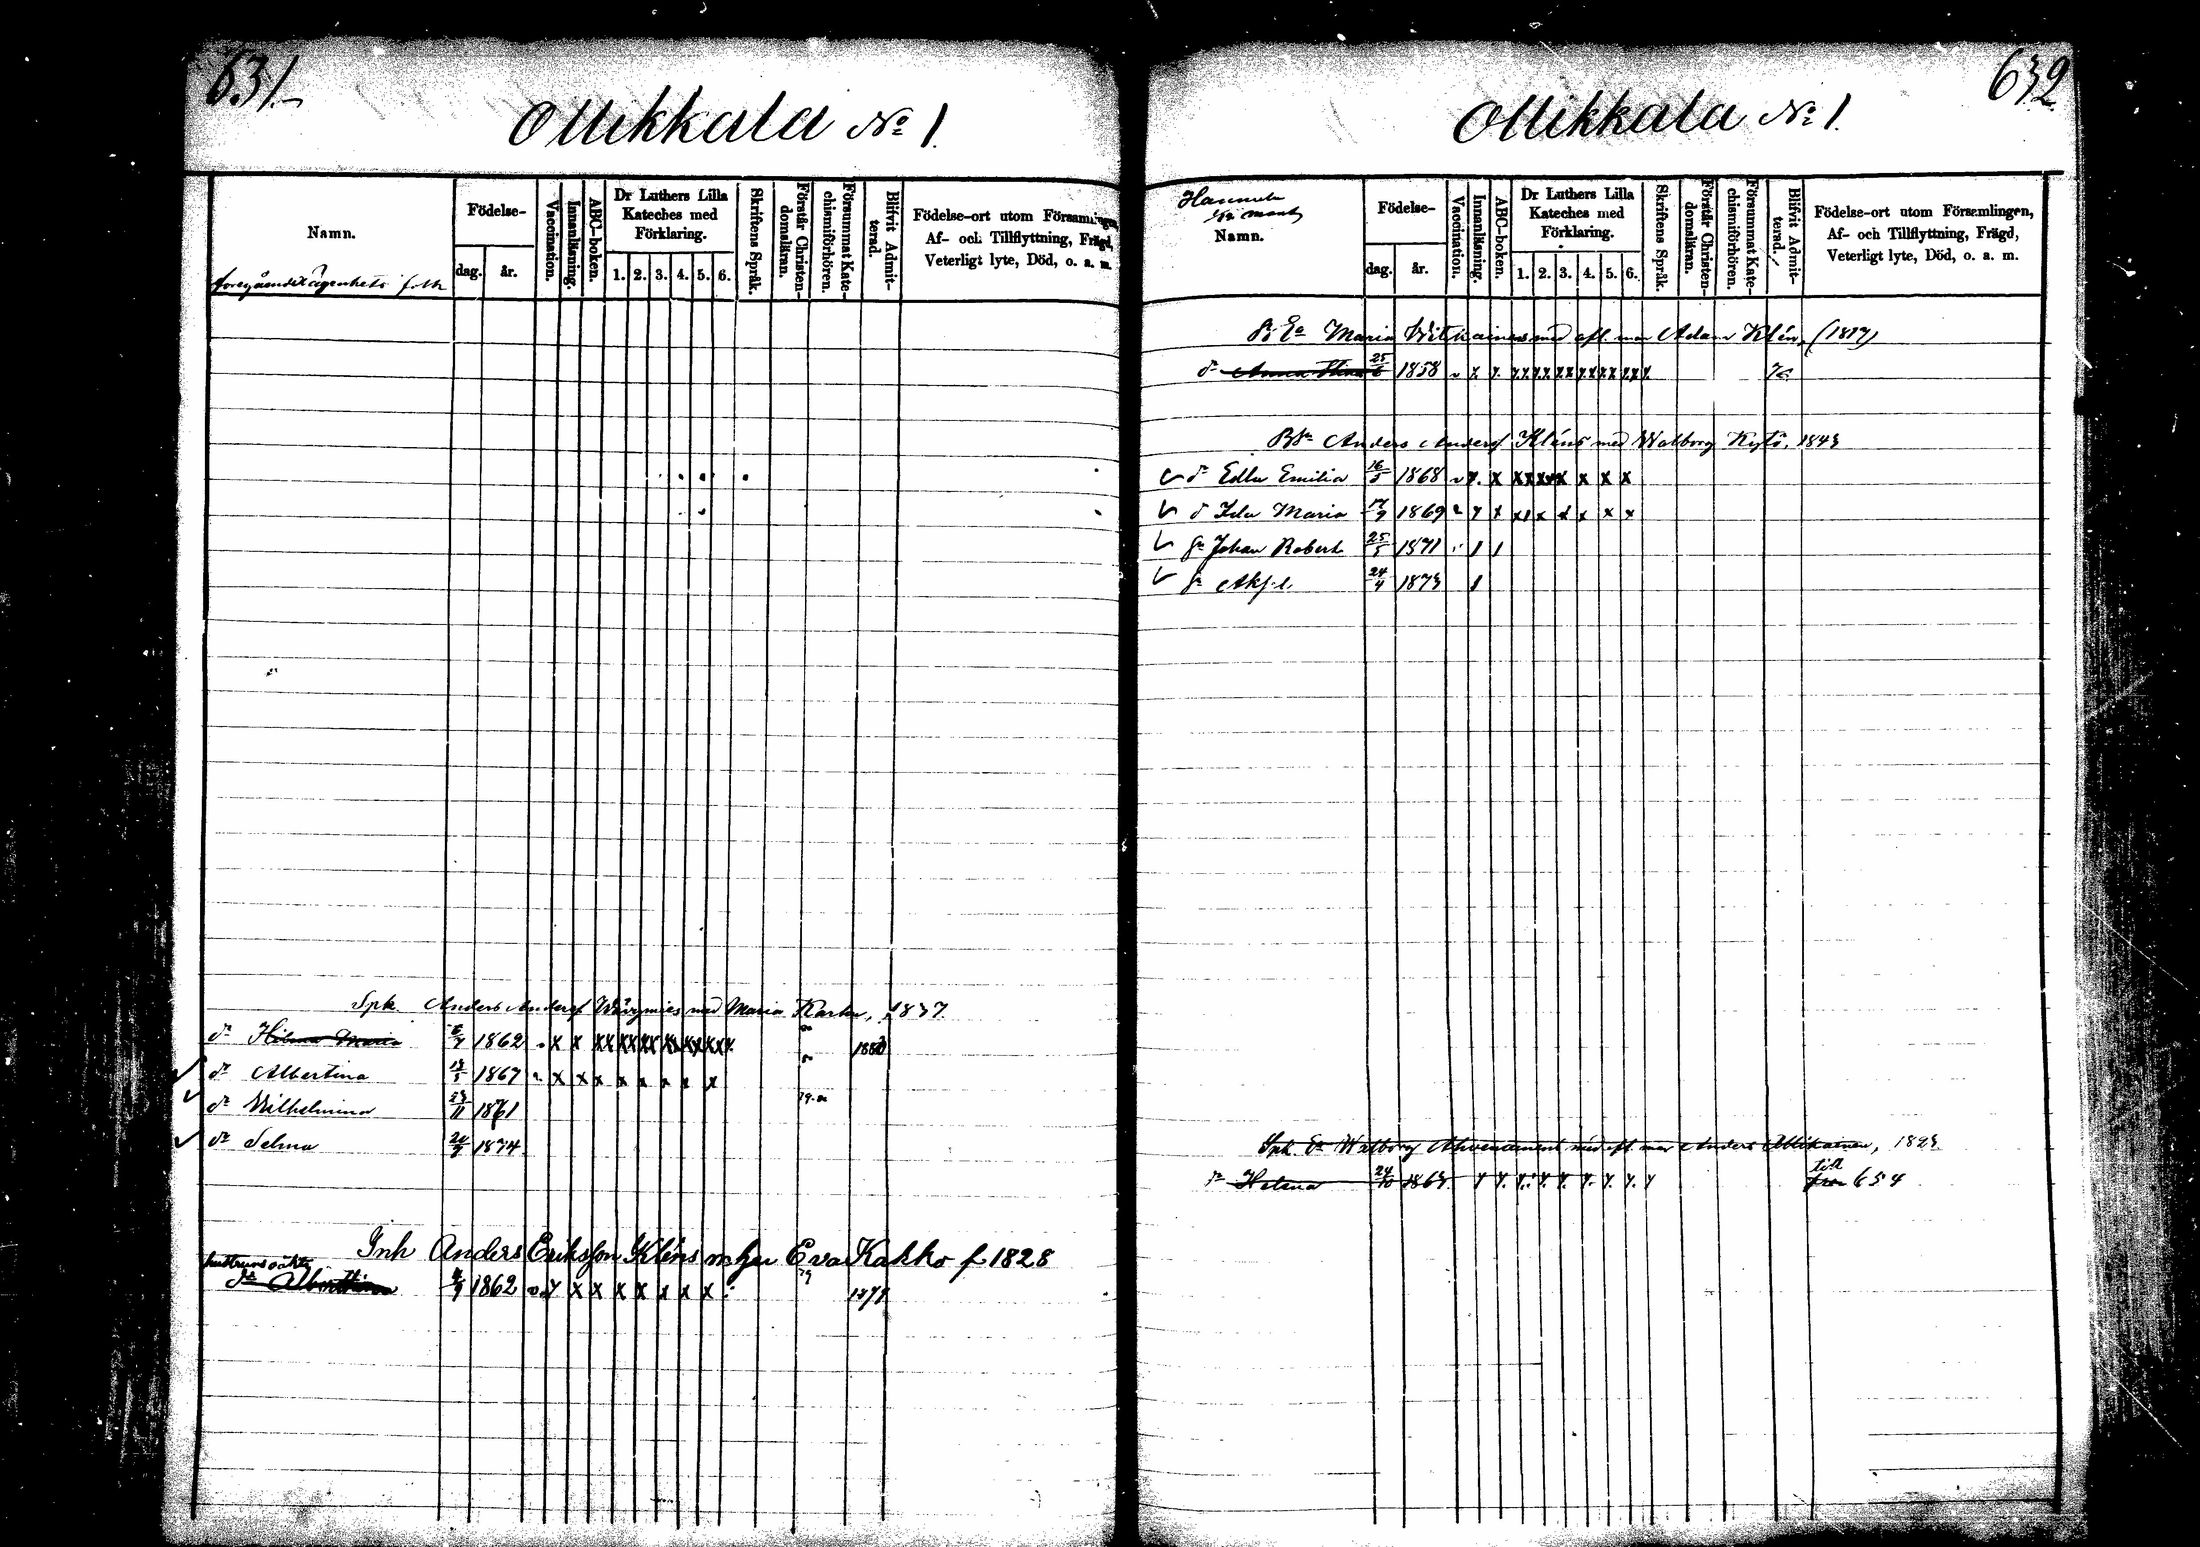 631.
Ollikkala No 1.
Namn.
föregående ägenhets folk
Födelse-
dag.
år.
Vaccination.
Innanläsning.
ABC-boken.
Dr Luthers Lilla
Kateches med
Förklaring.
1. 2. 3. 4. 5. 6.
Skriftens Språk.
Förstår Christen-
domsläran.
Försummat Kate-
chismiförhören.
Blifvit Admit-
terad.
Födelse-ort utom Församlingen,
Af- och Tillflyttning, Frägd,
Veterligt lyte, Död, o. a. m.
Spk. Anders Andersf med Maria Karhu, 1837.
dr Hilma Maria 1862 v x x xx xx xx xx xx xx x 1880
dr Albertina 13/5 1867 v x x x x x x x x
dr Wilhelmina 23/11 1861 79.
dr Selma 20/9 1874
Inh Anders Eriksson Kléns m hu Eva Kakko f 1828
hustruns oäkta
dr Albertina 4/9 1862 v. y x x x x x x x 79 1878
632
Ollikkala No 1.
Hannula
Namn.
Födelse-
dag.
år.
Vaccination.
Innanläsning.
ABC-boken.
Dr Luthers Lilla
Kateches med
Förklaring.
1. 2. 3. 4. 5. 6.
Skriftens Språk.
Förstår Christen-
domsläran.
Försummat Kate-
chismiförhören.
Blifvit Admit-
terad.
Födelse-ort utom Församlingen,
Af- och Tillflyttning, Frägd,
Veterligt lyte, Död, o. a. m.
Ea Maria Witikainen med afl. man Adam Klén, (1817)
dr Anna 25/6 1858 v x x xx xx xx xx xx xx x 76
Anders Andersf Kléns med Walborg Kytö, 1843
dr Edla Emilia 16/5 1868 v x x xx xx x x x x
d Ida Maria 17/9 1869 v x x x x x x x x
sn Johan Robert 25/5 1871 v / /
sn Aksel 24/4 1873 /
Spk. Ea Walborg med afl. man Anders Ollikainen, 1823
dr Helena 24/10 1863 x x x x x x x x x
till
från 654